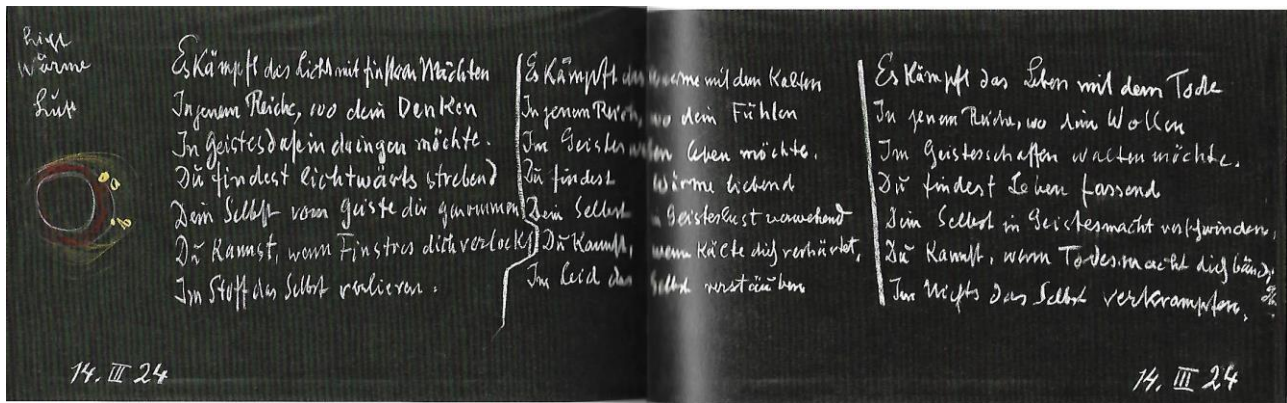 Licht
Wärme
Luft
Es Kämpft das Licht mit finstren Mächten
In jenem Reiche, wo dein Denken
In Geistesdasein dringen möchte.
Dū findest lichtwärts strebend
Dein Selbst vom Geiste dir genommen
Dū Kannst, wenn Finstres dich verlockt
Im Stoff das Selbst verlieren.
14. III 24
Es Kämpft das Warme mit dem Kalten
In jenem Reich, wo dein Fühlen
Im Geisterweben leben möchte.
Dū findest Wärme liebend
Dein Selbst in Geisterlust verwehend
Dū Kannst, wenn Kälte dich verhärtet,
Im Leid das Selbst verstäuben
Es Kämpft das Leben mit dem Tode
In jenem Reiche, wo dein Wollen
Im Geistesschaffen walten möchte.
Dū findest Leben fassend
Dein Selbst in Geistesmacht verschwinden,
Dū Kannst, wenn Todesmacht dich bänd,
Im Nichts das Selbst verkrampfen,
14. III 24